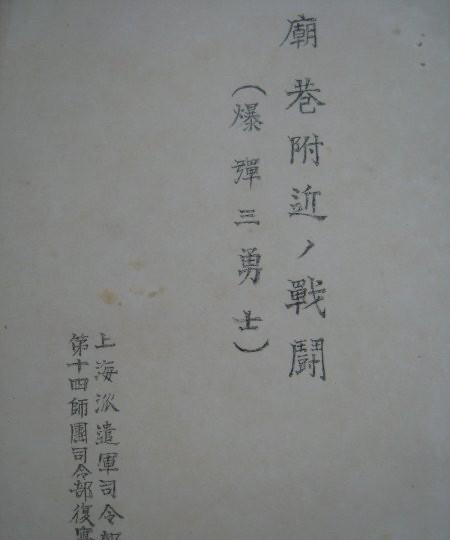 廟巷附近ノ戰鬪
(爆彈三勇士)
上海派遣軍司令部
第十四師團司令部復寫